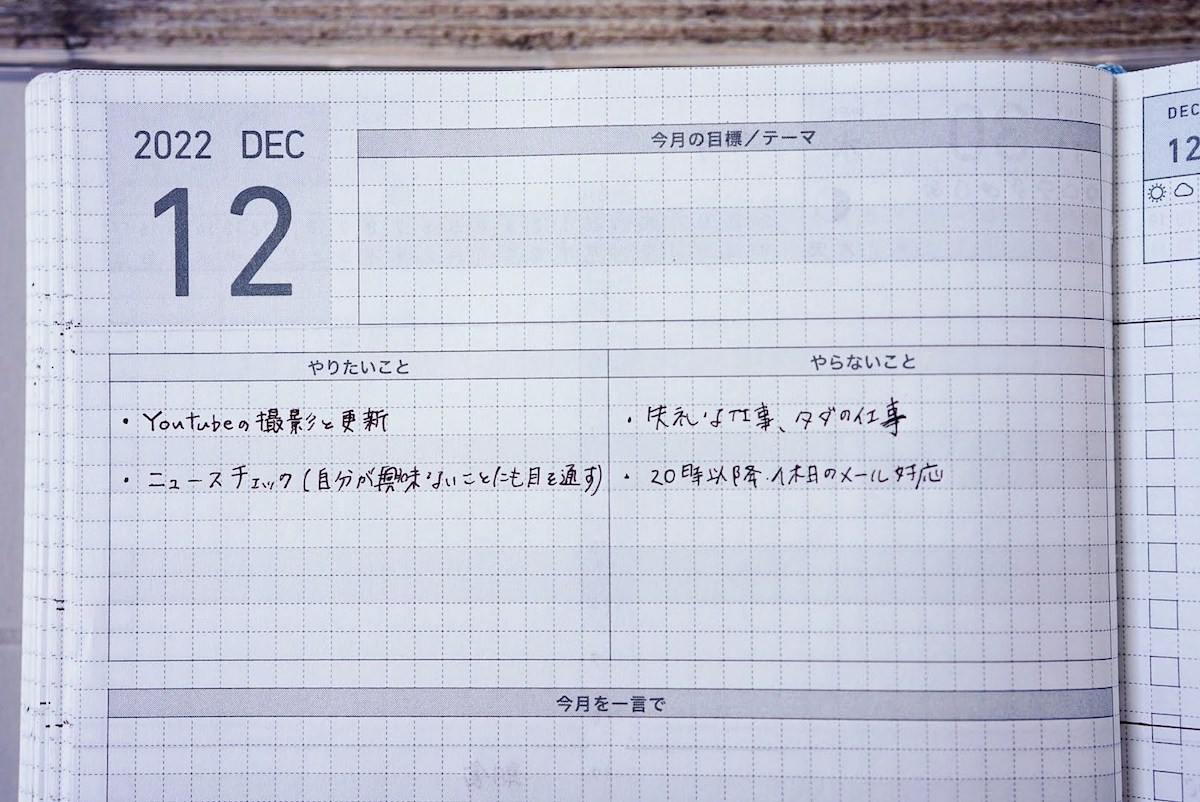 2022 DEC
12
今月の目標／テーマ
DEC
12
やりたいこと
やらないこと
・Youtubeの撮影と更新
・失礼な仕事、タダの仕事
・ニュースチェック(自分が興味ないことにも目を通す)
・20時以降・休日のメール対応
今月を一言で